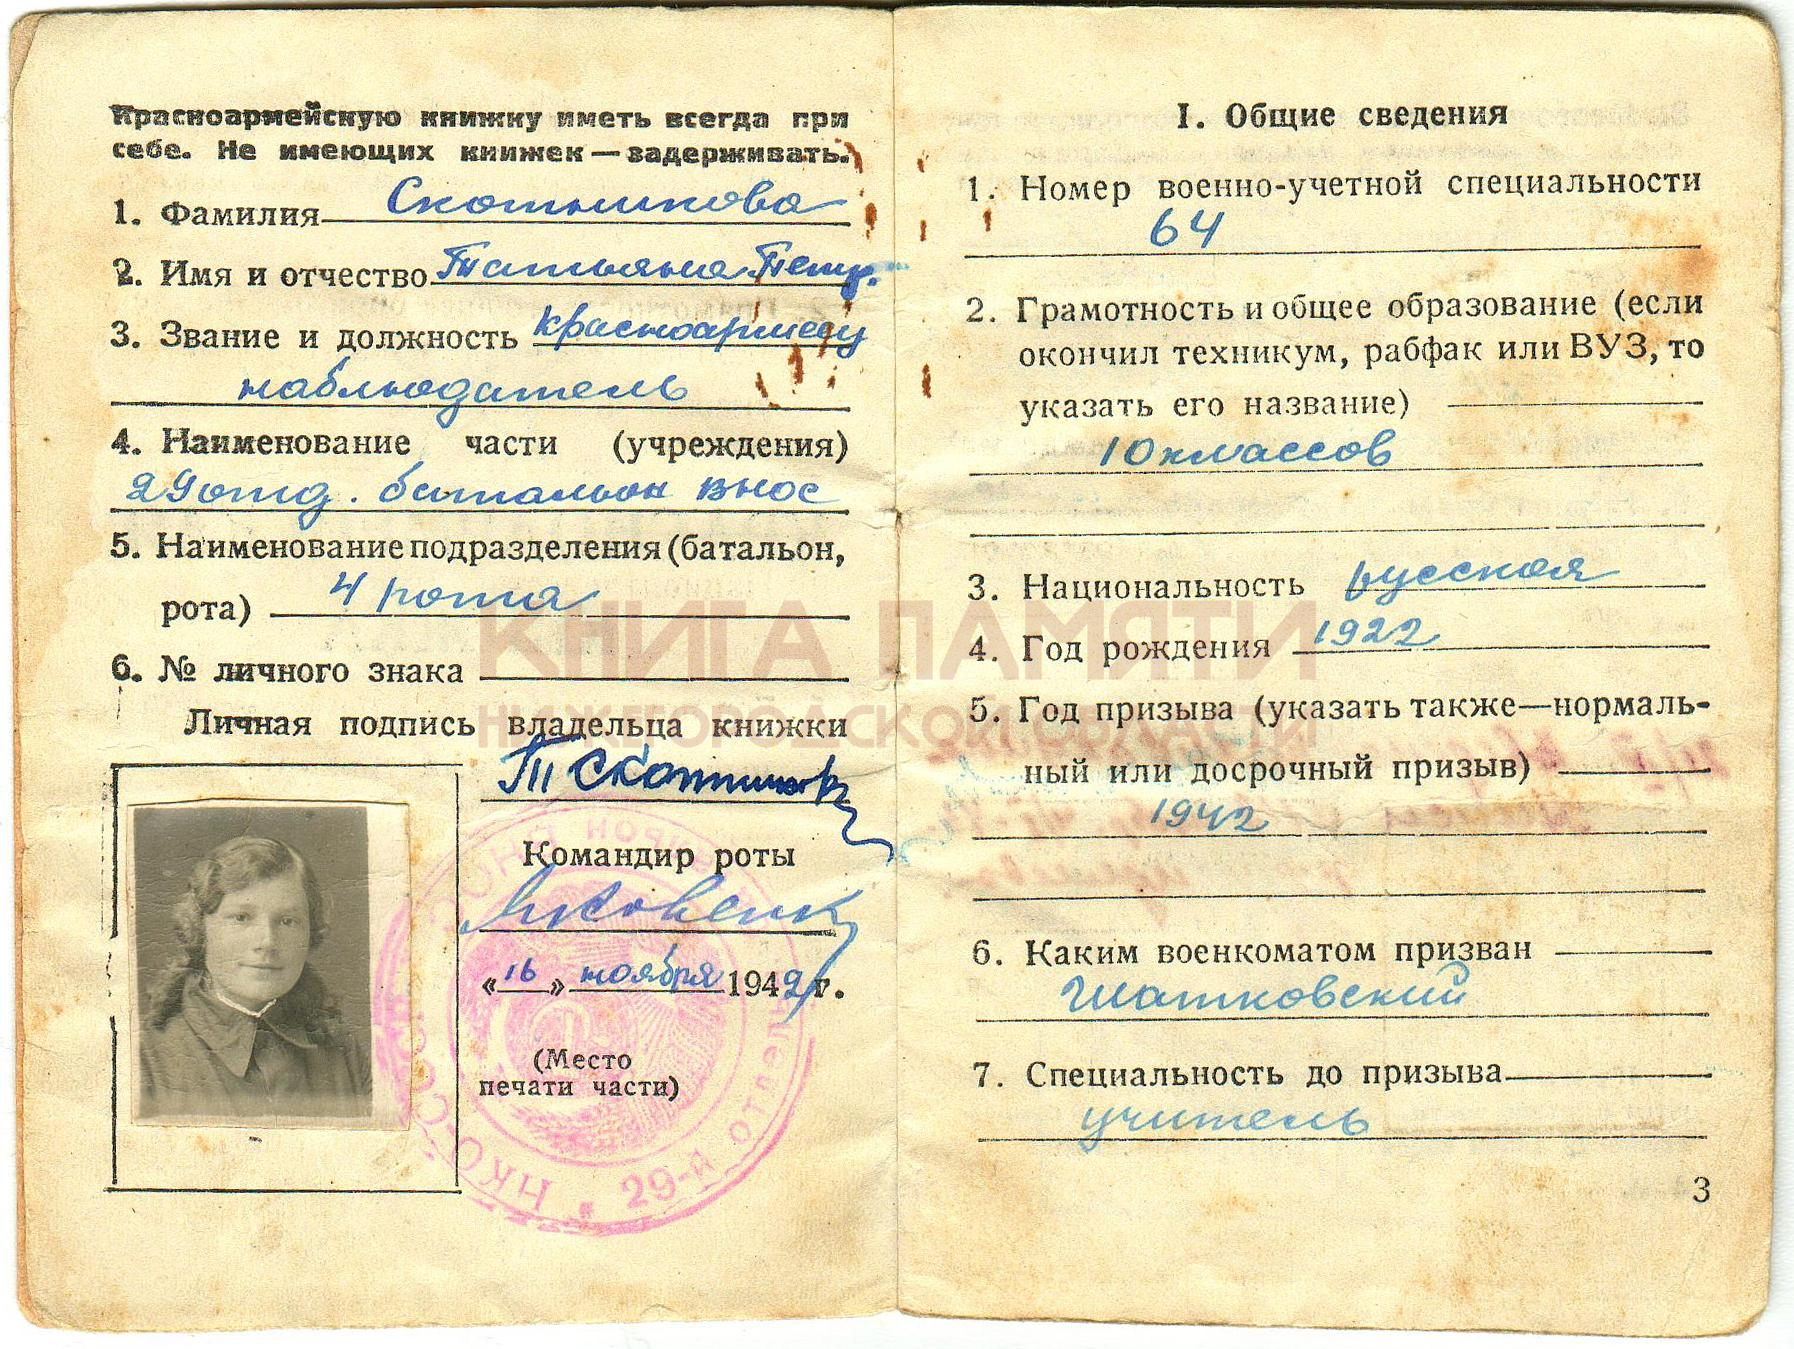 Красноармейскую книжку иметь всегда при
себе. Не имеющих книжек — задерживать.
1. Фамилия Скотникова
2. Имя и отчество Татьяна Петр.
3. Звание и должность красноармеец
наблюдатель
4. Наименование части (учреждения)
29 отд. батальон внос
5. Наименование подразделения (батальон,
рота) 4 рота
6. № личного знака
Личная подпись владельца книжки
Т Скотникова
Командир роты
«16» ноября 1942 г.
(Место
печати части)
НКО-СССР * 29-й ОТДЕЛ
I. Общие сведения
1. Номер военно-учетной специальности
64
2. Грамотность и общее образование (если
окончил техникум, рабфак или ВУЗ, то
указать его название)
10 классов
3. Национальность русская
4. Год рождения 1922
5. Год призыва (указать также—нормаль-
ный или досрочный призыв)
1942
6. Каким военкоматом призван
Шатковский
7. Специальность до призыва
учитель
3
КНИГА ПАМЯТИ
НИЖЕГОРОДСКОЙ ОБЛАСТИ